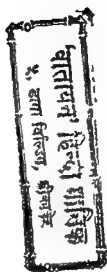 'वातायन' हिन्दी मासिक
५, डागा बिल्डिंग, बीकानेर